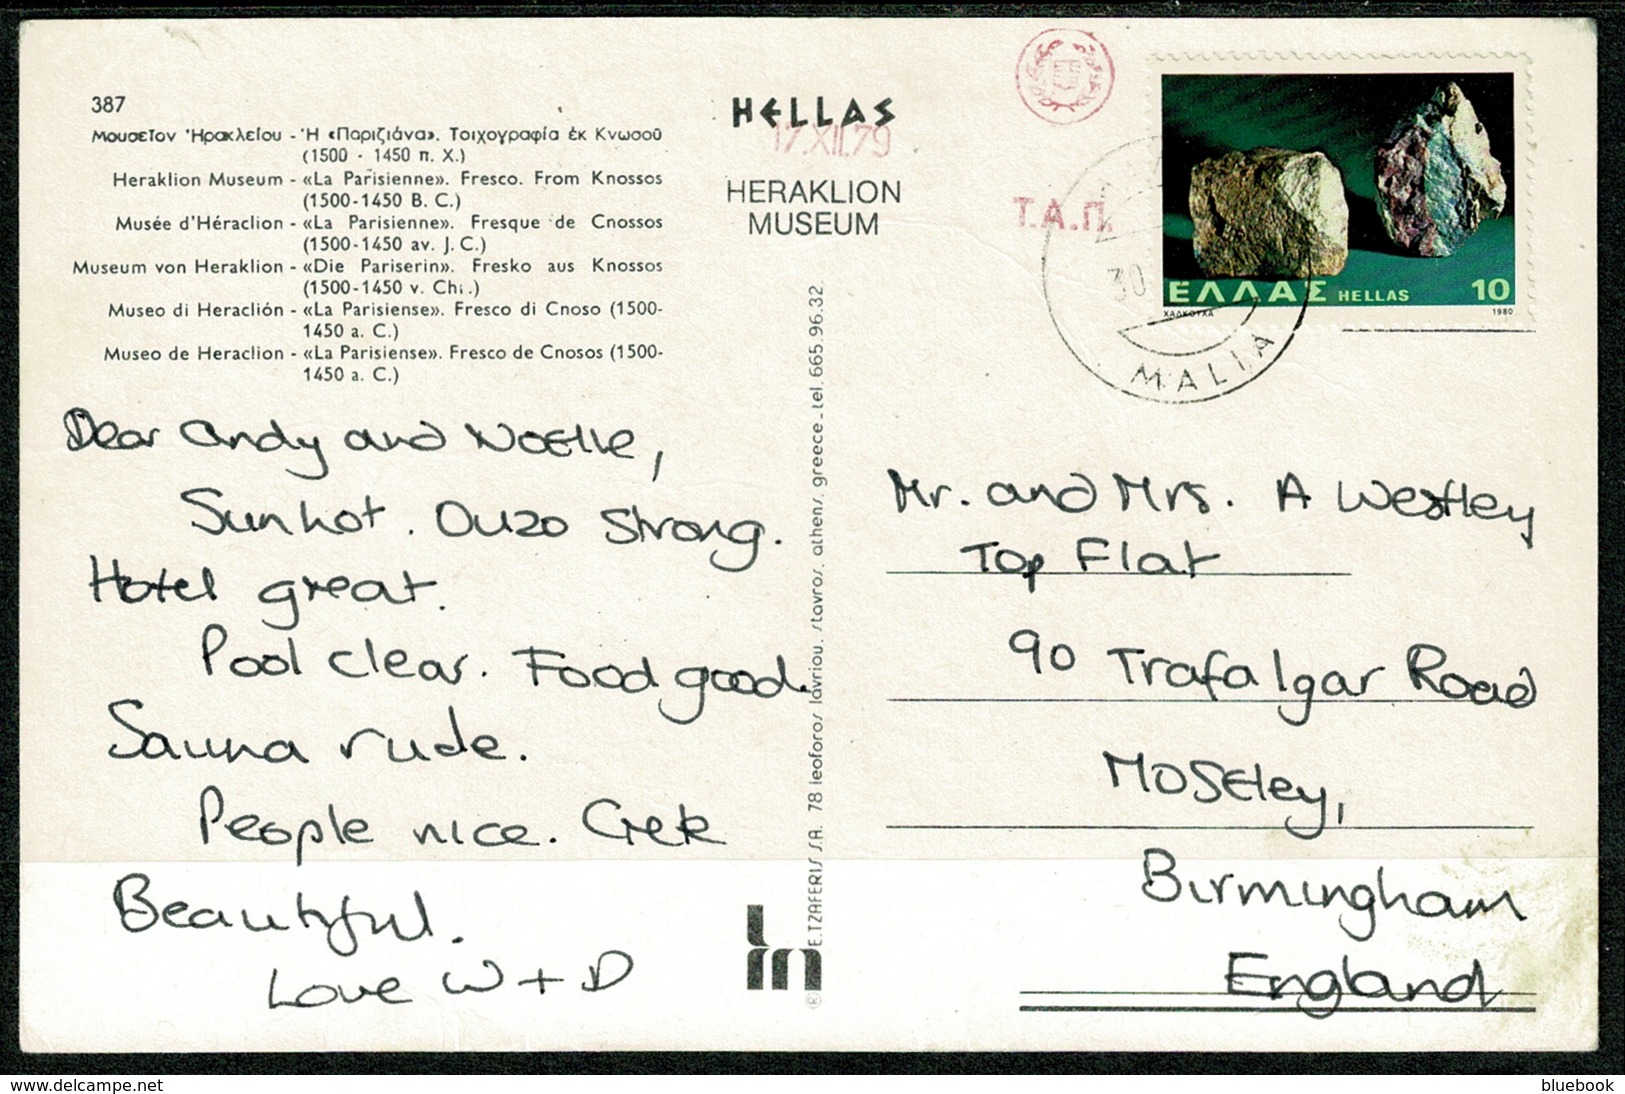 387
Μουσεῖον Ἡρακλείου - Ἡ «Παριζιάνα». Τοιχογραφία ἐκ Κνωσοῦ
(1500 - 1450 π. Χ.)
Heraklion Museum - «La Parisienne». Fresco. From Knossos
(1500-1450 B. C.)
Musée d'Héraclion - «La Parisienne». Fresque de Cnossos
(1500-1450 av. J. C.)
Museum von Heraklion - «Die Pariserin». Fresko aus Knossos
(1500-1450 v. Chi.)
Museo di Heraclión - «La Parisiense». Fresco di Cnoso (1500-
1450 a. C.)
Museo de Heraclion - «La Parisiense». Fresco de Cnosos (1500-
1450 a. C.)
Dear Andy and Noelle,
Sun hot. Ouzo strong.
Hotel great.
Pool clear. Food good.
Sauna rude.
People nice. Crete
Beautiful.
Love W + D
HELLAS
17.XII.79
HERAKLION
MUSEUM
T.A.Π.
E.TZAFERIS S.A. 78 leoforos lavriou, stavros, athens, greece - tel. 665.96.32
ln
®
30
MALIA
ΕΛΛΑΣ HELLAS 10
ΧΑΛΚΟΥΧΑ 1980
Mr. and Mrs. A Westley
Top Flat
90 Trafalgar Road
Moseley,
Birmingham
England
delcampe.net
bluebook